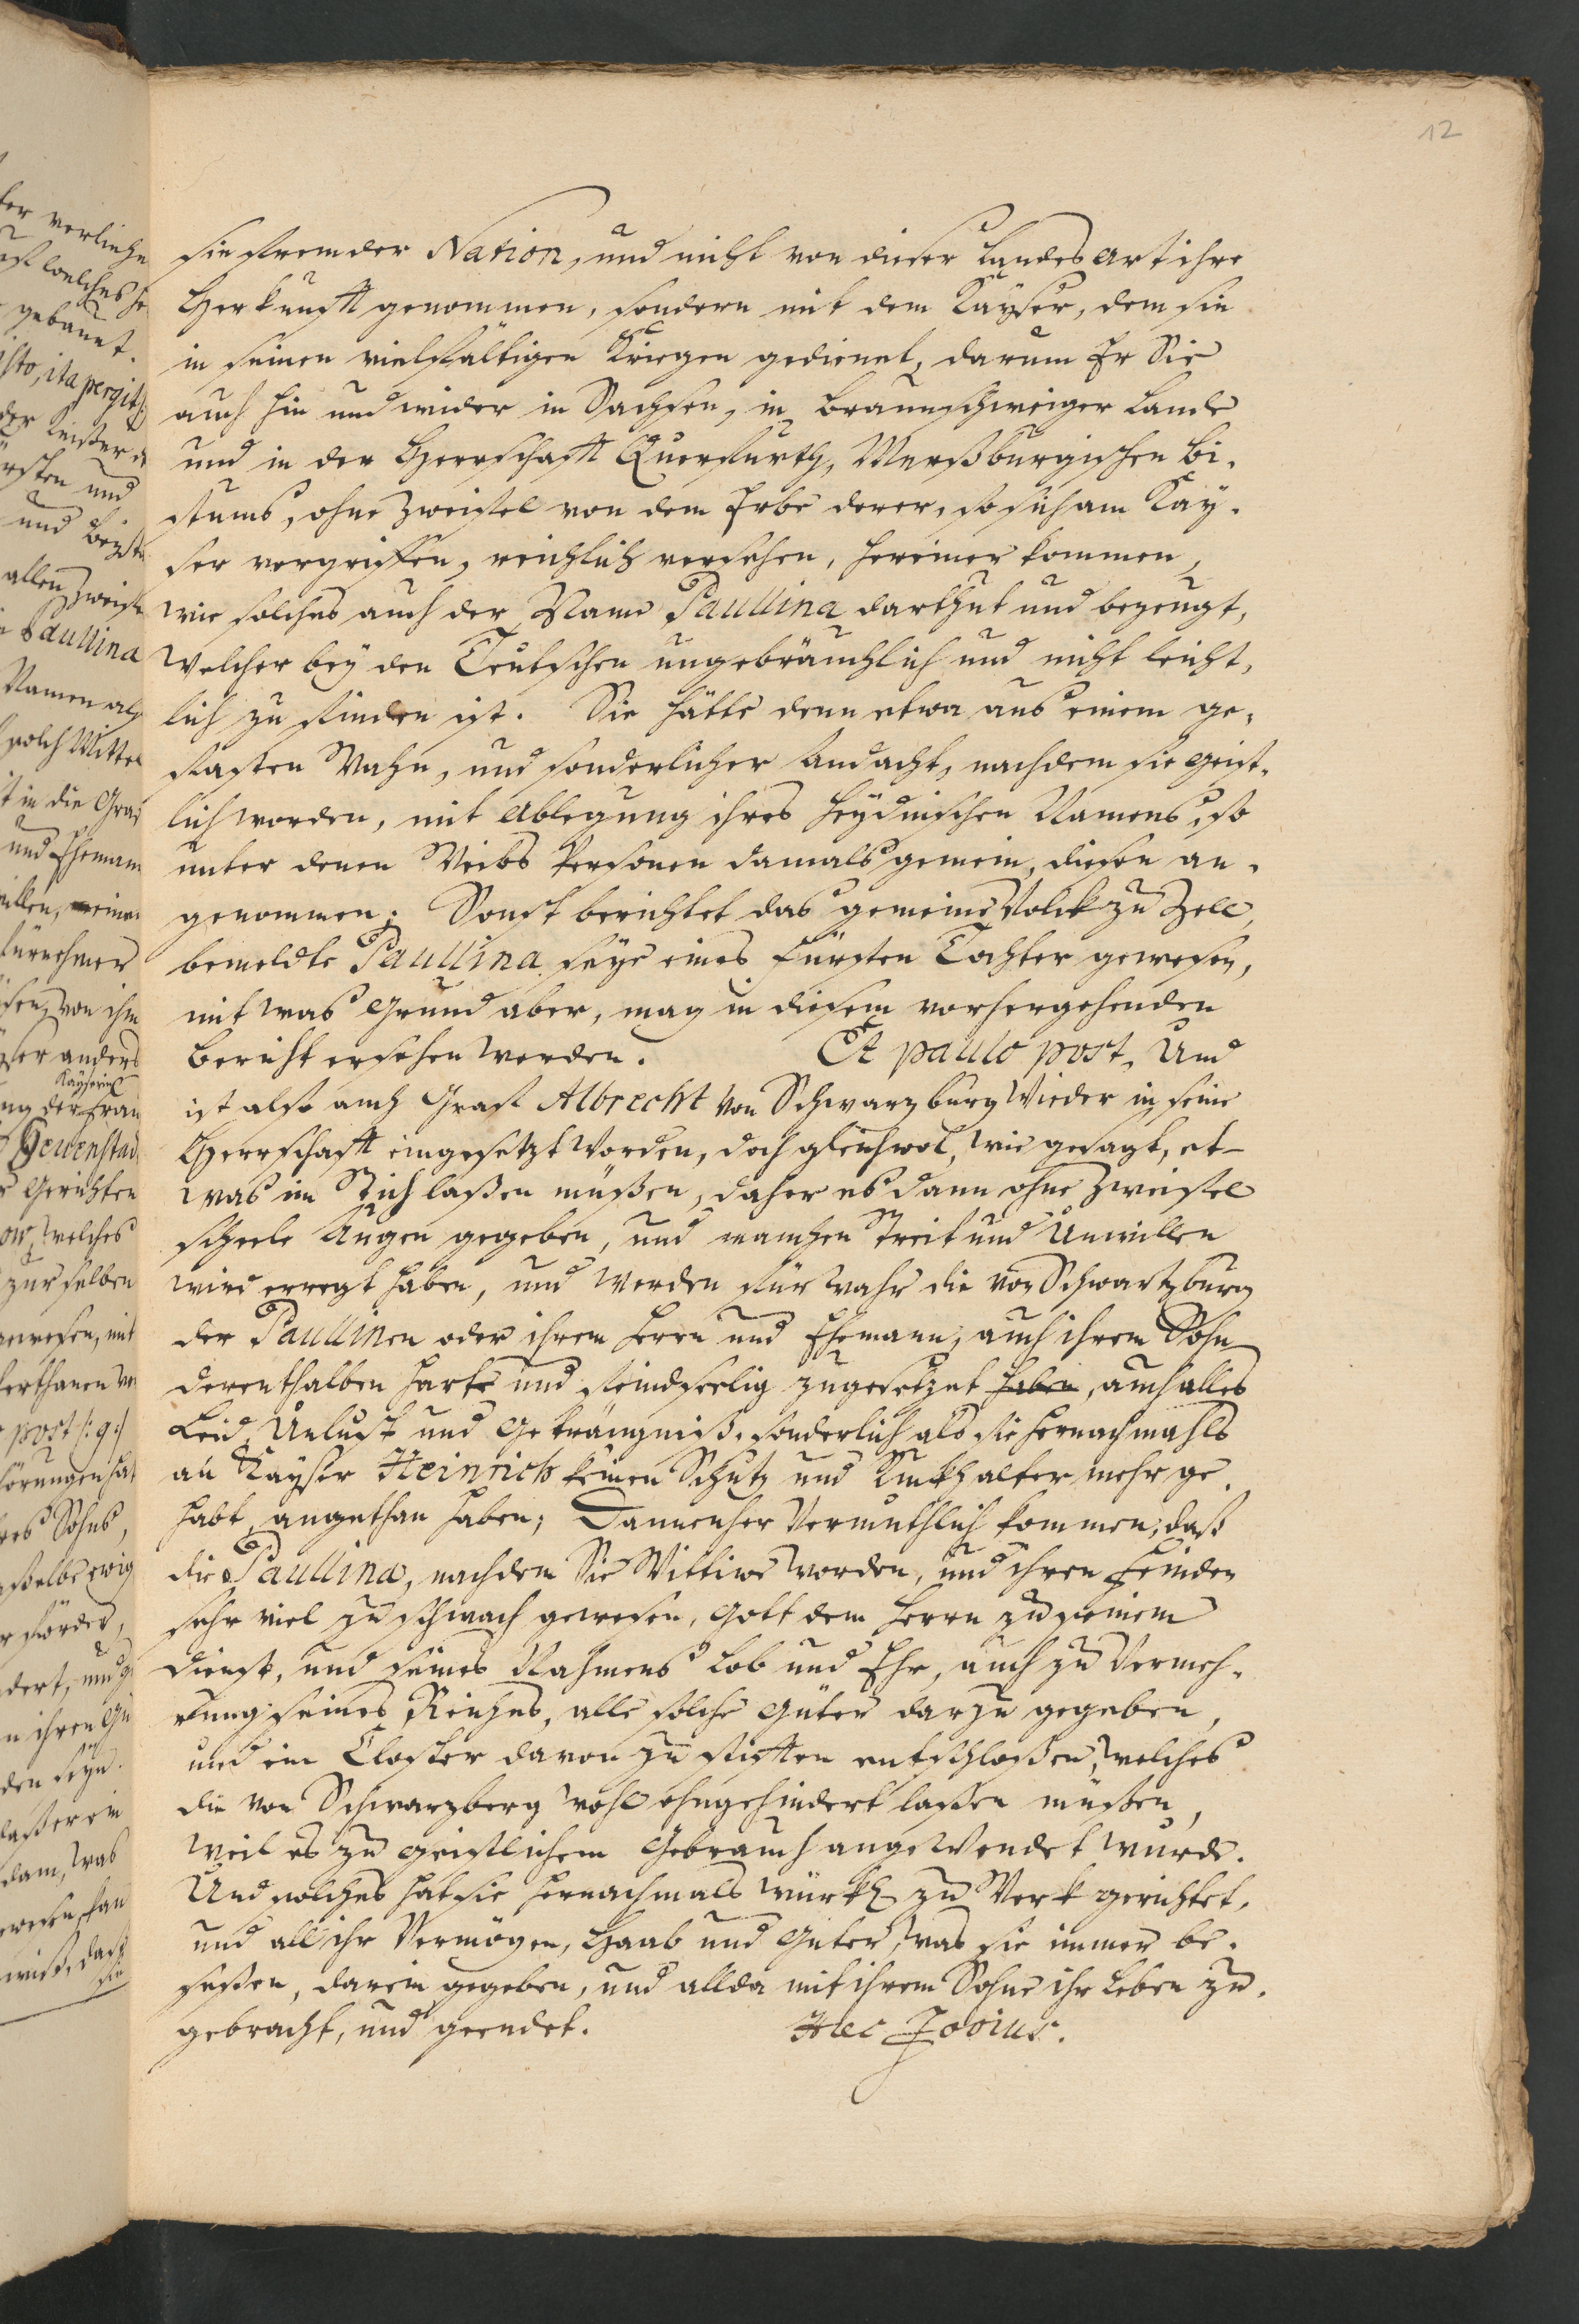 12
sie frembder Nation, und nicht von dieser Landes art ihre
Herkunfft genommen, sondern mit dem Kayser, dem sie
in seinen vielfältigen Kriegen gedienet, darum Er Sie
auch hin und wider in Sachsen, in Braunschweiger Lande
und in der Herrschafft Querfurth, Merßburgischen Bi-
stums, ohne Zweifel von dem Erbe derer, so sich am Kay-
ser vergriffen, reichlich versehen, hereiner kommen,
wie solches auch der Name Paullina darthut und bezeugt,
welcher bey den Teutschen ungebräuchlich und nicht leicht-
lich zu finden ist. Sie hätte denn etwa aus einem ge-
fasten Wahn, und sonderlicher Andacht, nachdem sie geist-
lich worden, mit Ablegung ihres heydnischen Namens, so
unter denen Weibs Personen damals gemein, diesen an-
genommen; Sonst berichtet das gemeine Volck zu Zell,
bemeldte Paullina seye eines Fürsten Tochter gewesen,
mit was Grund aber, mag in diesem vorhergehenden
Bericht ersehen werden. Et paulo post. Und
ist also auch Graf Albrecht von Schwarzburg wieder in seine
Herrschafft eingesetzt worden, doch gleichwol, wie gesagt, et-
was im Stich laßen müßen, daher es dann ohne Zweifel
scheele Augen gegeben, und manchen Streit und Unwillen
wird erregt haben, und werden fürwahr die von Schwartzburg
der Paullinen oder ihrem Herrn und Ehemann, auch ihrem Sohn
derenthalben harte und feindseelig zugesetzet haben, auch alles
Leid, Unlust und Gekrängniß, sonderlich als sie hernachmahls
an Kayser Heinrich keinen Schutz und Rückhalter mehr ge-
habt, angethan haben; Dannenher vermuthlich kommen, daß
die Paullina, nachdem Sie Wittiwe worden, und ihren Feinden
sehr viel zu schwach gewesen, Gott dem Herrn zu seinem
Dienst, und seines Nahmens Lob und Ehr, auch zu Vermeh-
rung seines Reiches, alle solche Güter darzu gegeben,
und ein Closter davon zu stifften entschloßen, welches
die von Schwarzberg wohl ohngehindert laßen müßen,
weil es zu geistlichem Gebrauch angewendet wurde.
Und solches hat sie hernachmals würkl. zu Werk gerichtet,
und all ihr Vermögen, Haab und Güter, was sie immer be-
seßen, darein gegeben, und allda mit ihrem Sohne ihr Leben zu-
gebracht, und geendet. Hæc Jovius.